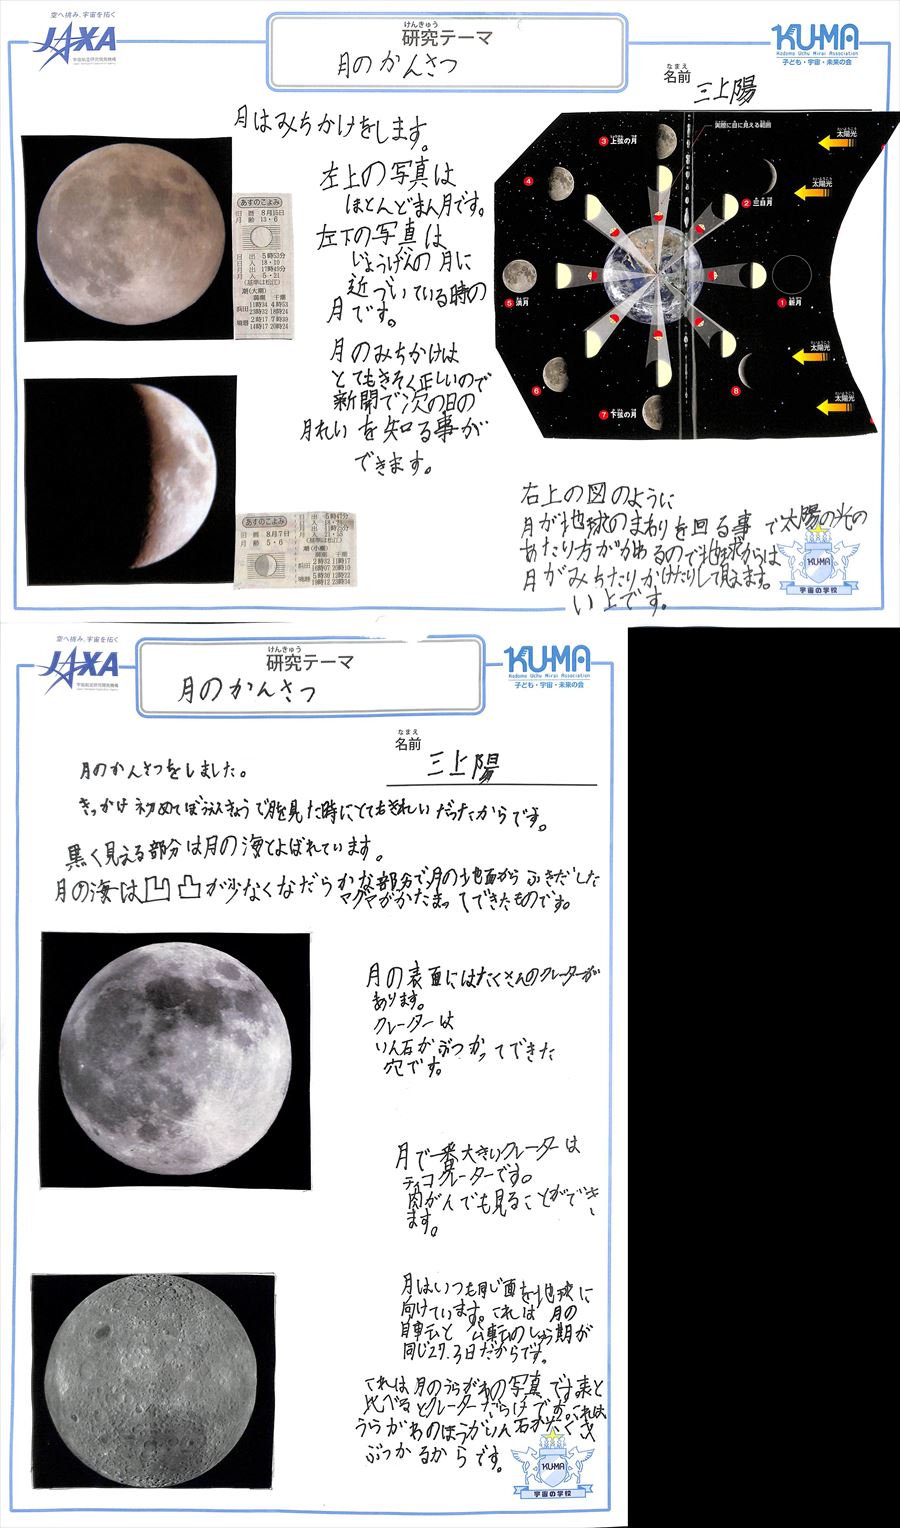 空へ挑み、宇宙を拓く
JAXA
宇宙航空研究開発機構
けんきゅう
研究テーマ
月のかんさつ
KU-MA
Kodomo Uchu Mirai Association
子ども・宇宙・未来の会
なまえ
名前
三上陽
月はみちかけをします。
左上の写真は
ほとんどまん月です。
左下の写真は
じょうげんの月に
近づいている時の
月です。
月のみちかけは
とてもきそく正しいので
新聞で次の日の
月れいを知る事が
できます。
あすのこよみ
旧暦 8月15日
月齢 13・6
日出 5時53分
日入 18・10
月出 17時49分
月入 5・21
(基準は松江)
潮(大潮)
満潮 干潮
浜田 11時34 4時53
23時32 18時24
境港 2時17 7時39
14時17 20時24
あすのこよみ
旧暦 8月7日
月齢 5・6
(基準は松江)
潮(小潮)
満潮 干潮
浜田 2時32 11時17
16時07 20時10
境港 5時30 12時22
19時12 23時04
実際に目に見える範囲
3 上弦の月
太陽光
4
太陽光
2 三日月
5 満月
1 新月
太陽光
6
8
太陽光
7 下弦の月
右上の図のように
月が地球のまわりを回る事で太陽の光の
あたり方がかわるので地球からは
月がみちたりかけたりして見えます。
い上です。
KUMA
宇宙の学校
空へ挑み、宇宙を拓く
JAXA
宇宙航空研究開発機構
けんきゅう
研究テーマ
月のかんさつ
KU-MA
Kodomo Uchu Mirai Association
子ども・宇宙・未来の会
なまえ
名前
三上陽
月のかんさつをしました。
きっかけ初めてぼうえんきょうで月を見た時にとてもきれいだったからです。
黒く見える部分は月の海とよばれています。
月の海は凹凸が少なくなだらかな部分で月の地面からふきだした
マグマがかたまってできたものです。
月の表面にはたくさんのクレーターが
あります。
クレーターは
いん石がぶつかってできた
穴です。
月で一番大きいクレーターは
ティコクレーターです。
肉がんでも見ることができ
ます。
月はいつも同じ面を地球に
向けています。これは月の
自転と公転のしゅう期が
同じ27.3日だからです。
これは月のうらがわの写真です表と
比べるとクレーターだらけです。これは
うらがわのほうがいん石が多くさ
ぶつかるからです。
KUMA
宇宙の学校